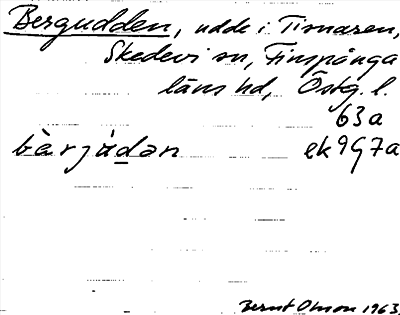 Bergudden, udde i Tisnaren,
Skedevi sn, Finspånga
läns hd, Östg. l.
63a
bàrjúdan ek9G7a
Bernt Olsson 1963.